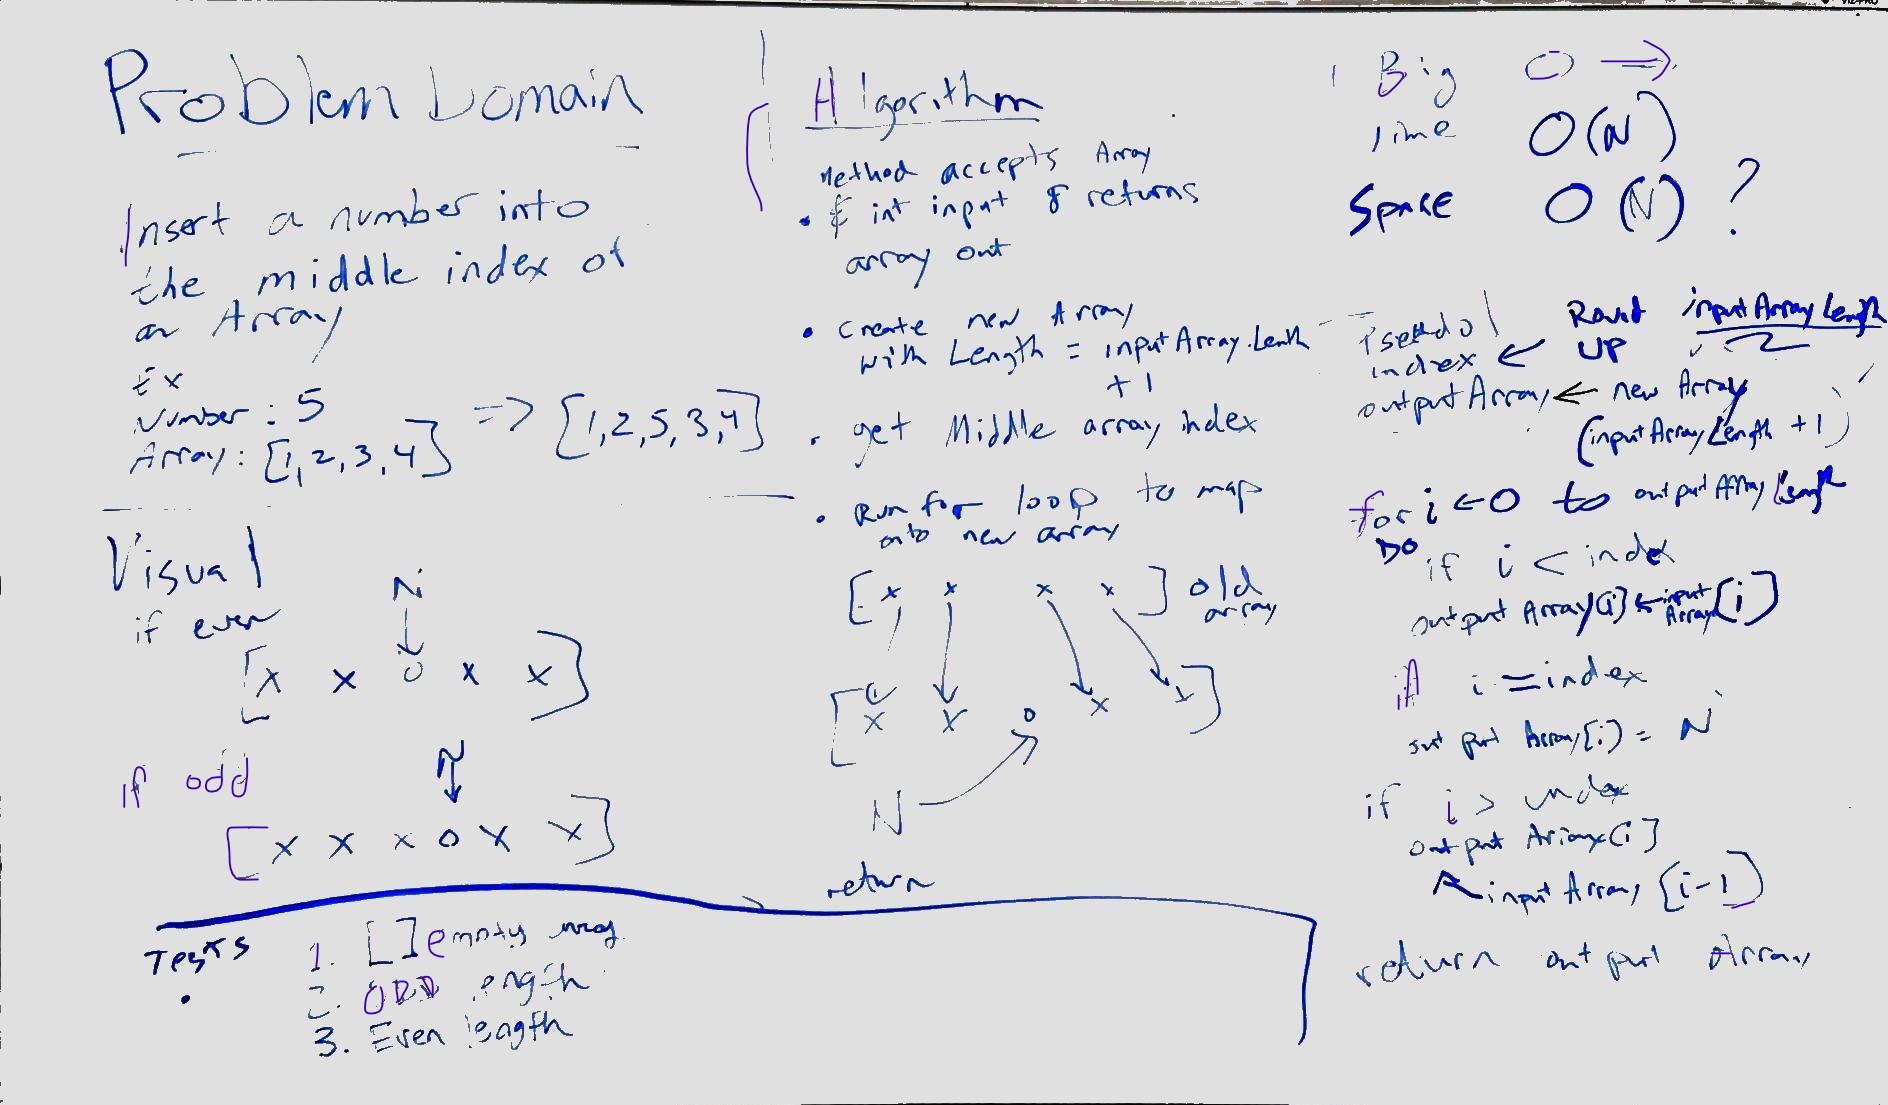 Problem Domain
Insert a number into
the middle index of
an Array
Ex
Number : 5
Array : [1, 2, 3, 4] => [1, 2, 5, 3, 4]
Visual
if even
N
[x x o x x]
if odd
N
[x x x o x x]
Tests
1. [ ] empty
2. ODD length
3. Even length
Algorithm
Method accepts Array
• & int input & returns
array out
• Create new Array
with Length = inputArray.Lenth
+ 1
• get Middle array index
• Run for loop to map
onto new array
[x x x x] old
array
[x x o x x]
N
return
Big O =>
Time O(N)
Space O(N) ?
Pseudo
index ← Round inputArray Length
UP 2
outputArray ← new Array
(inputArray Length + 1)
for i ← 0 to outputArray Length
DO
if i < index
output Array[i] ← input
Array [i]
if i = index
output Array[i] = N
if i > index
output Array[i]
← inputArray [i-1]
return output Array